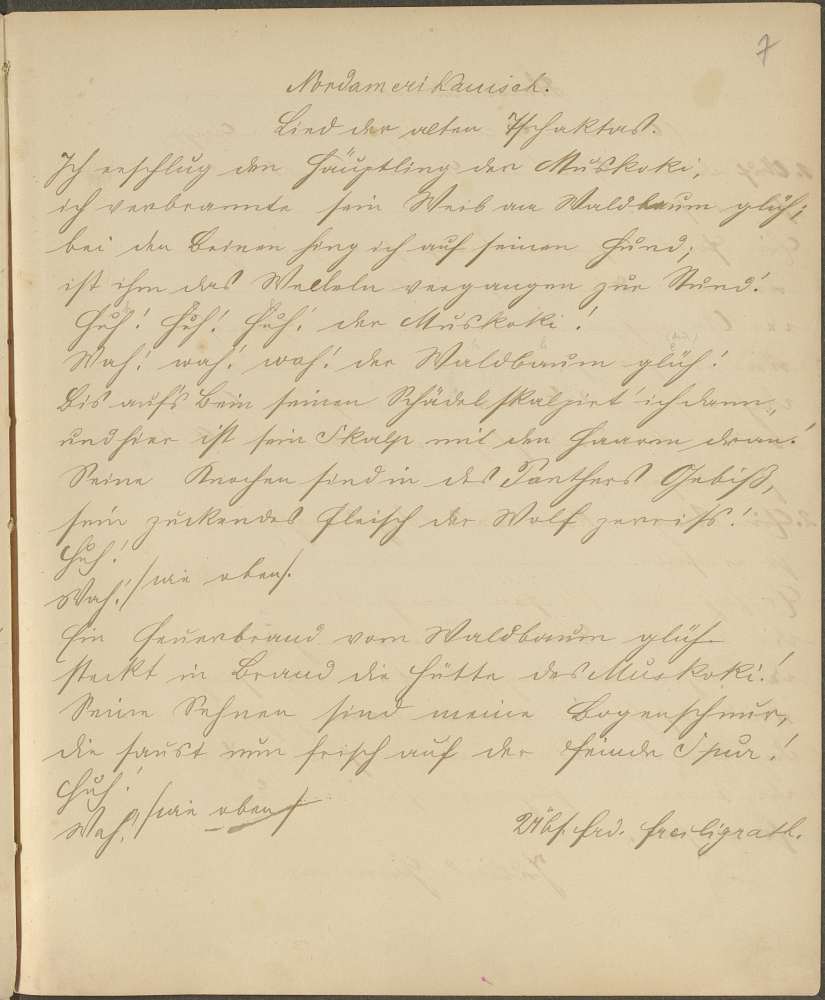 7
Nordamerikanisch.
Lied der alten Tschaktas.
Ich erschlug den Häuptling der Muskoki,
ich verbrannte sein Weib am Waldbaum glüh;
bei den Beinen hing ich auf seinen Hund;
ist ihm das Wedeln vergangen zur Stund!
Huh! Huh! Huh! der Muskoki!
Wah! wah! wah! der Waldbaum glüh!
Bis aufs Bein seinen Schädel skalpirt' ich dann,
und hier ist sein Skalp mit den Haaren dran!
Seine Knochen sind in des Panthers Gebiß,
sein zuckendes Fleisch der Wolf zerriss!
Huh!
Wah! / wie oben/.
Ein Feuerbrand vom Waldbaum glüh
steckt in Brand die Hütte des Muskoki!
Seine Sehnen sind meine Bogenschnur,
die saust nun frisch auf der Feinde Spur!
Huh!
Wah! /wie oben/
Übs. Frd. Freiligrath.